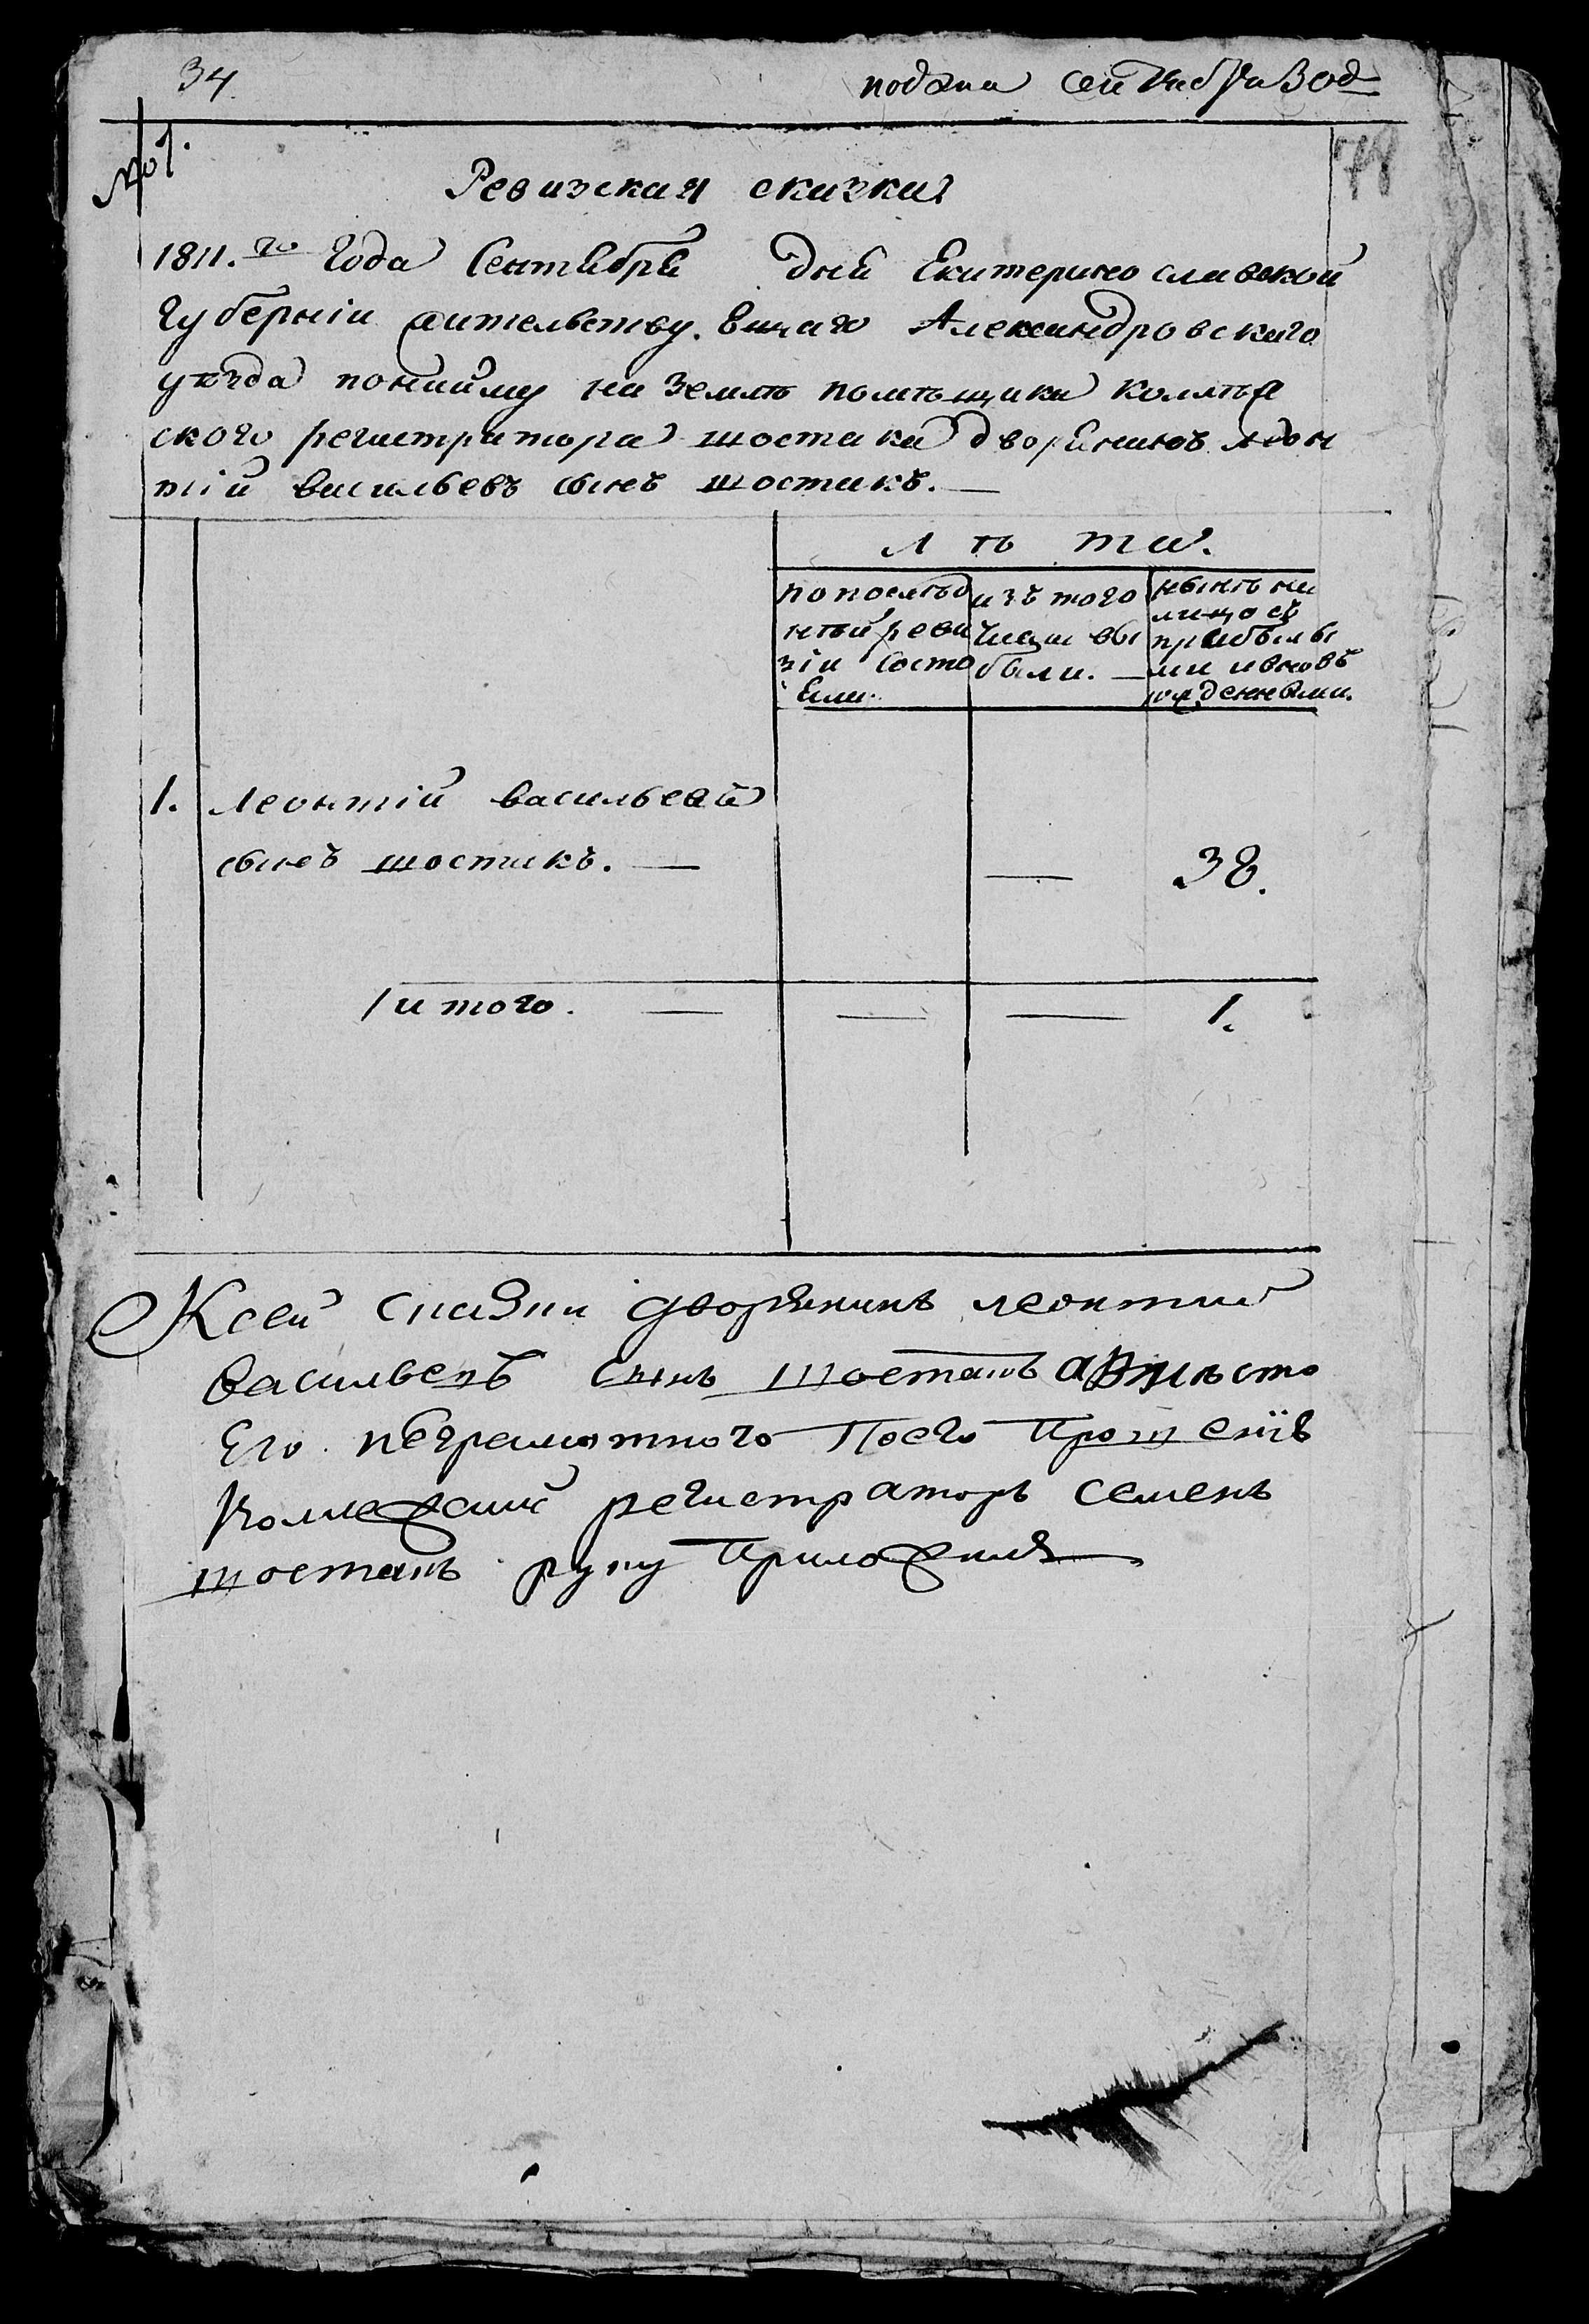 34
подана сентября 30д
78
№ 1.
Ревизская сказка
1811.го года Сентября дня Екатеринославской
Губерніи жительству. ющаго Александровскаго
уѣзда понайму на Землѣ помѣщика колѣж
ского регистратора шостака дворянинъ леон
тій васильевъ сынъ шостакъ.
Лѣта.
попослѣд
нѣй реви
зіи состо
яли.
изъ того
числа вы
были.
нынѣ на
лицо съ
прибылы
ми ивновь
рожденными.
1. Леонтій васильевъ
сынъ шостакъ. — — 38.
итого. — — — 1.
Ксей сказки дворянинъ леонтий
васильевъ сынъ шостакъ авмѣсто
Его неграмотного Поего Прошенію
Коллежский регистраторъ семенъ
шостакъ руку Приложилъ